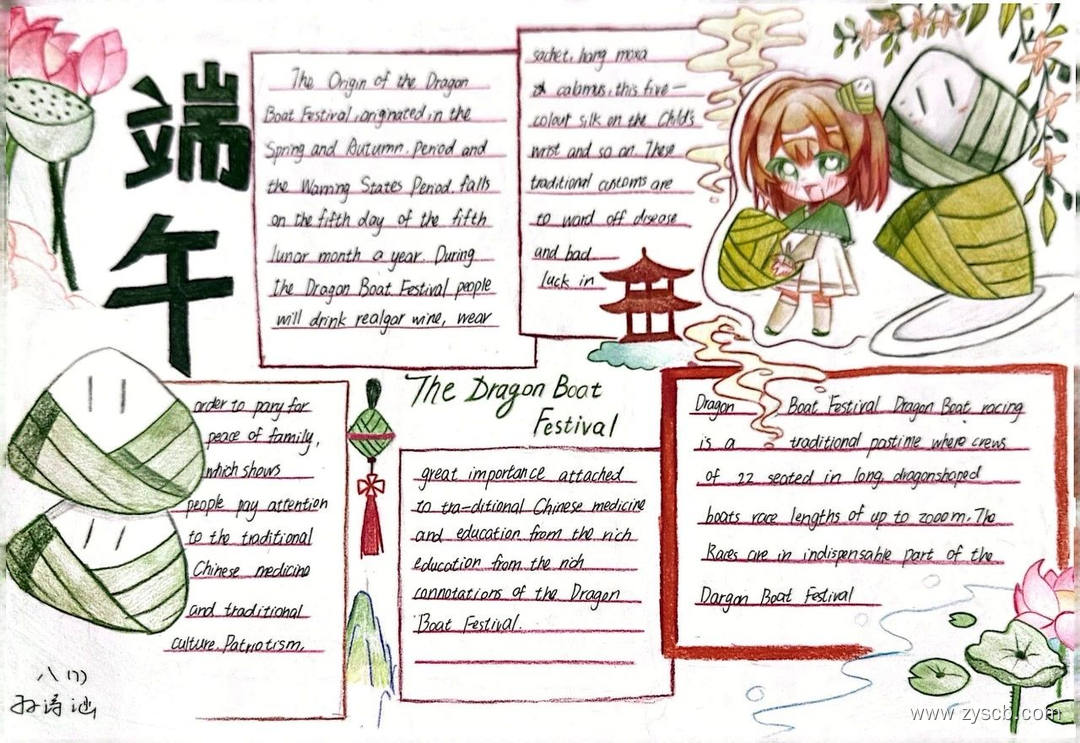 端午
The Origin of the Dragon
Boat Festival, originated, in the
Spring and Autumn. Period and
the Warning States Period. falls
on the fifth day of the fifth
lunar month a year. During
the Dragon Boat Festival people
will drink realgar wine, wear
sachet, hang moxa
calamus, this five—
colout silk on the Child's
wrist and so on. These
traditional customs are
to ward off disease
and bad
luck in
order to pary for
peace of family,
which shows
people pay attention
to the traditional
Chinese medicine
and traditional
culture. Patriotism.
The Dragon Boat
Festival
great importance attached
to tra-ditional Chinese medicine
and education from the rich
education from the rich
connotations of the Dragon
Boat Festival.
Dragon Boat Festival Dragon Boat racing
is a traditional pastime where crews
of 22 seated in long dragonshaped
boats race lengths of up to 2000m. The
Races are in indispensable part of the
Dargon Boat Festival
www.zyscb.com